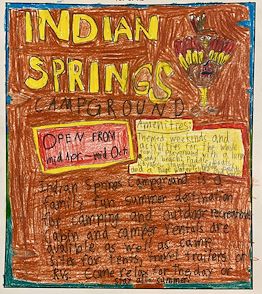 INDIAN
SPRINGS
CAMPGROUND
OPEN FROM
mid Jun - mid Oct
Amenities:
weekends and
activities for the whole
and a
Indian Springs Campground is a
family fun summer destination
for camping and outdoor recreation.
Cabin and camper rentals are
available as well as camp
sites for tents, travel trailers or
RVs. Come relax for the day or
stay all summer.